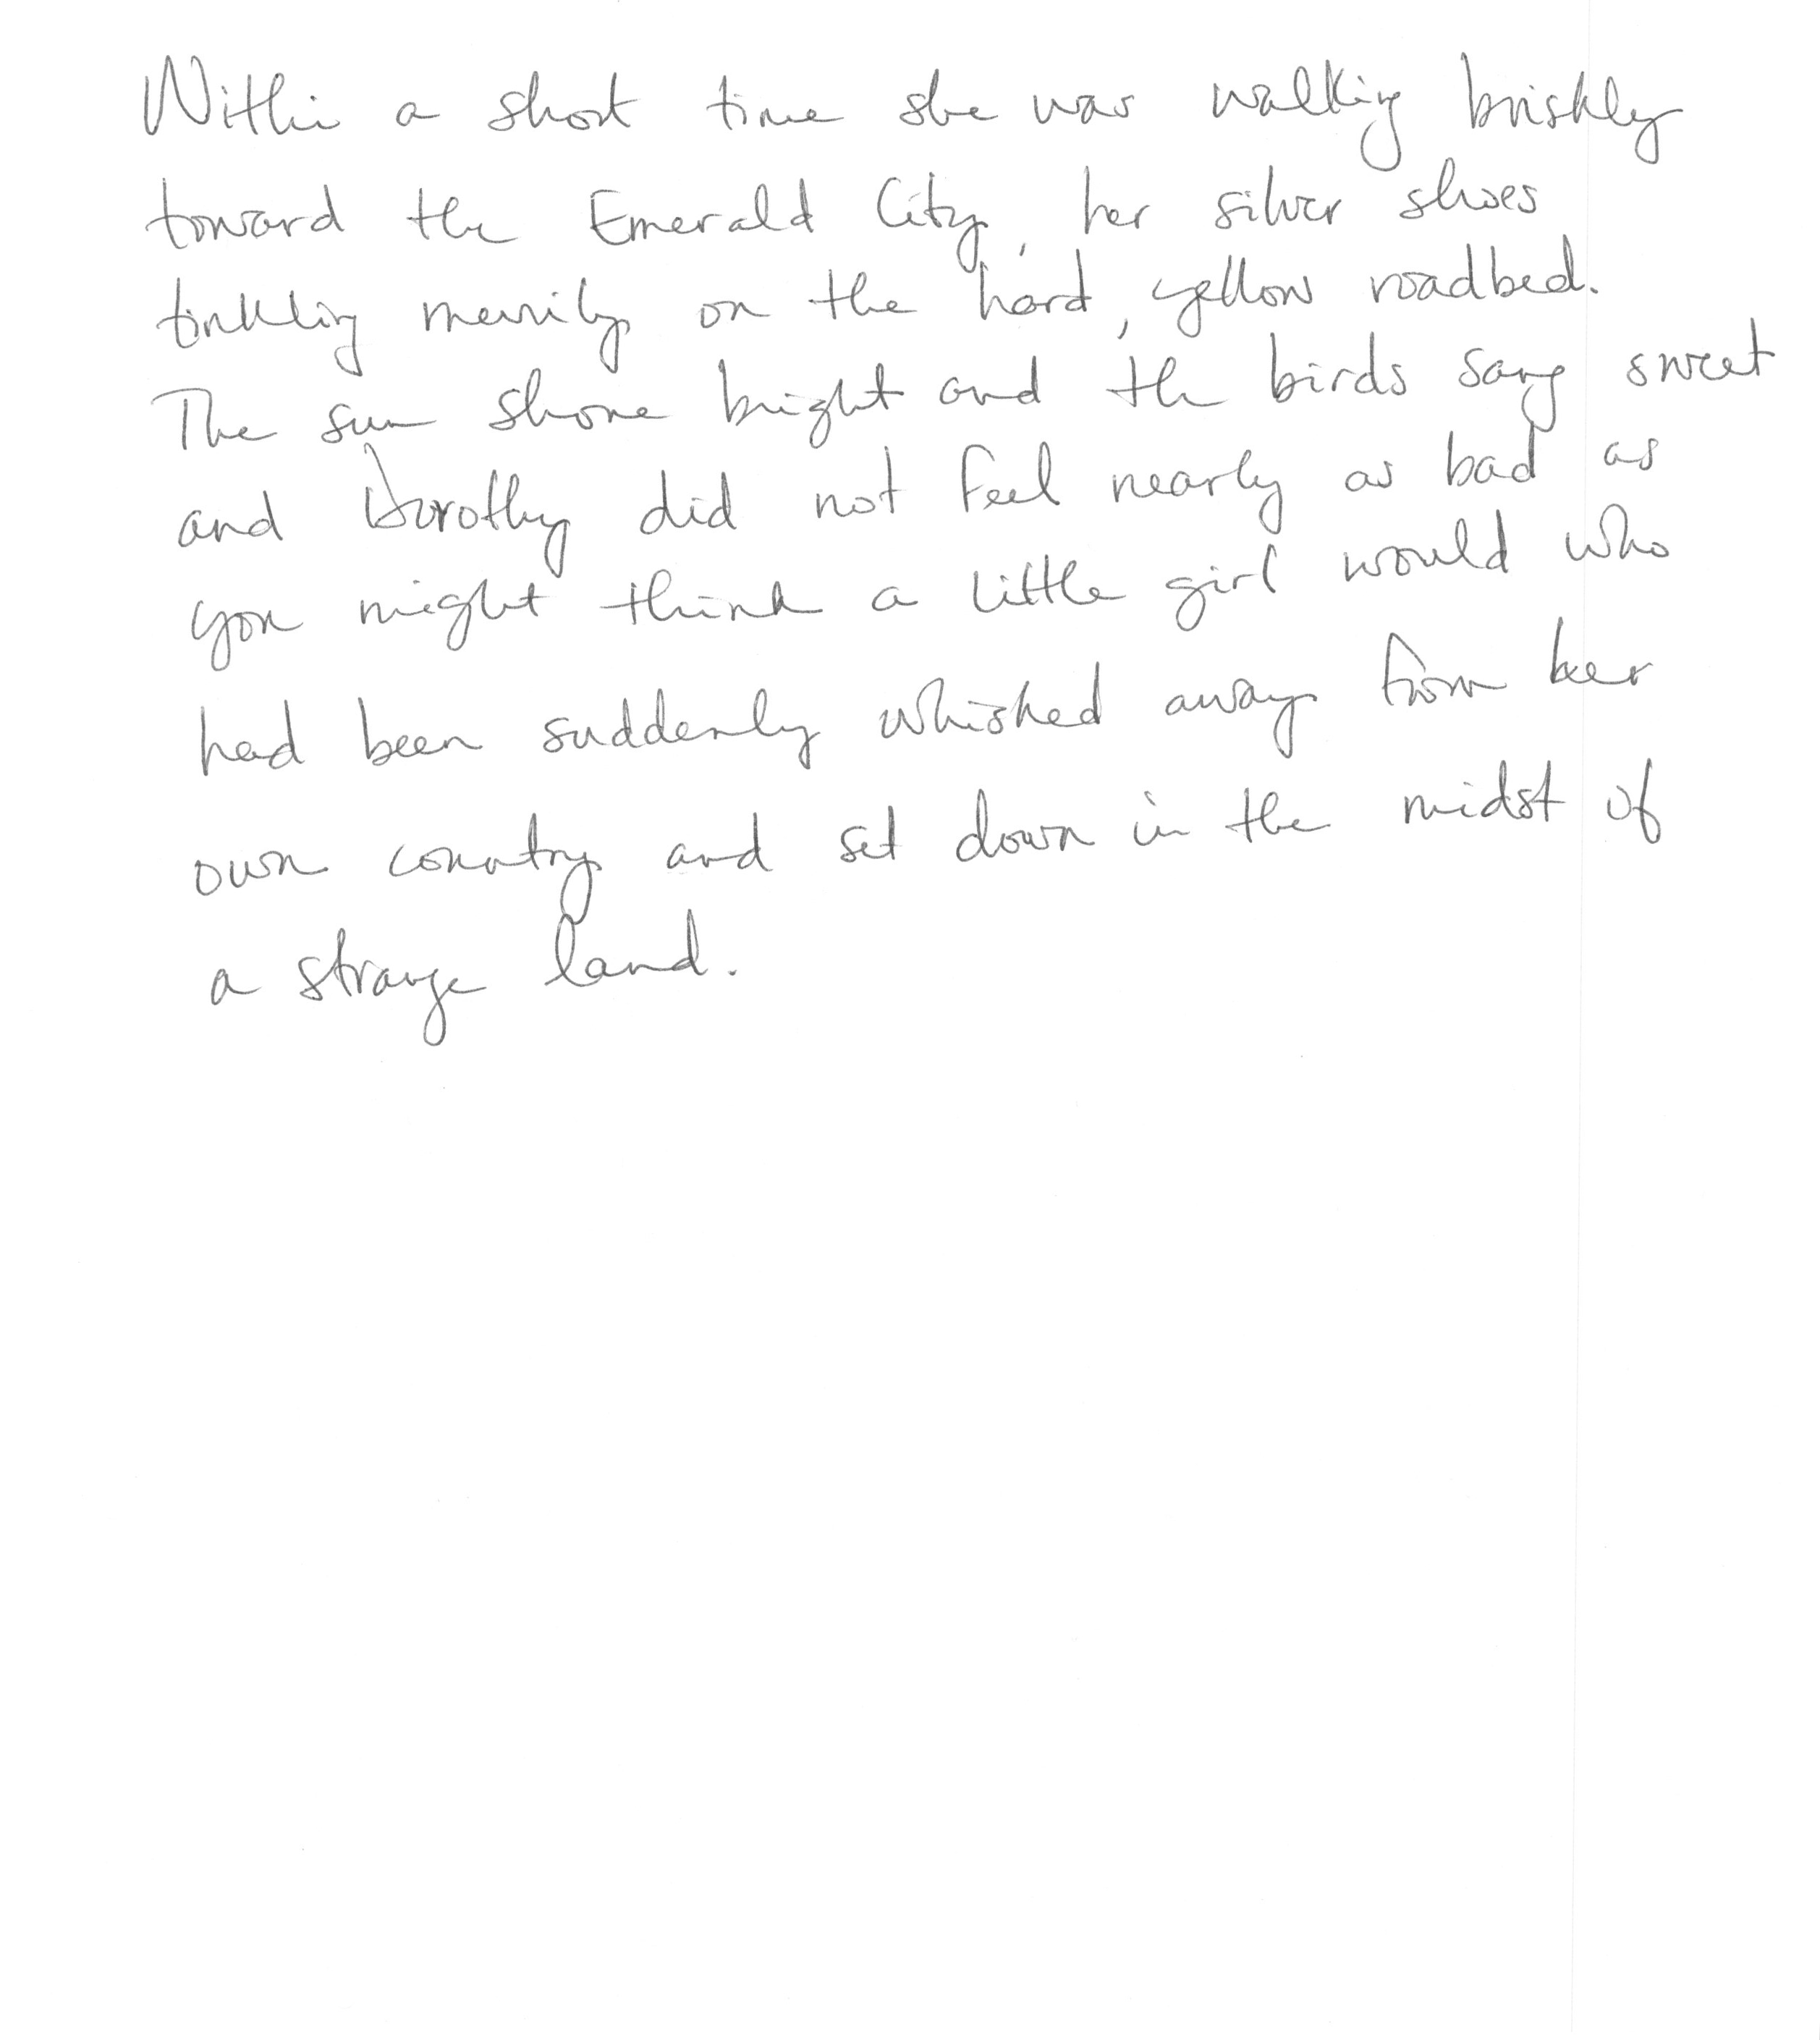 Within a short time she was walking briskly
toward the Emerald City, her silver shoes
tinkling merrily on the hard, yellow roadbed.
The sun shone bright and the birds sang sweet
and Dorothy did not feel nearly as bad as
you might think a little girl would who
had been suddenly whisked away from her
own country and set down in the midst of
a strange land.